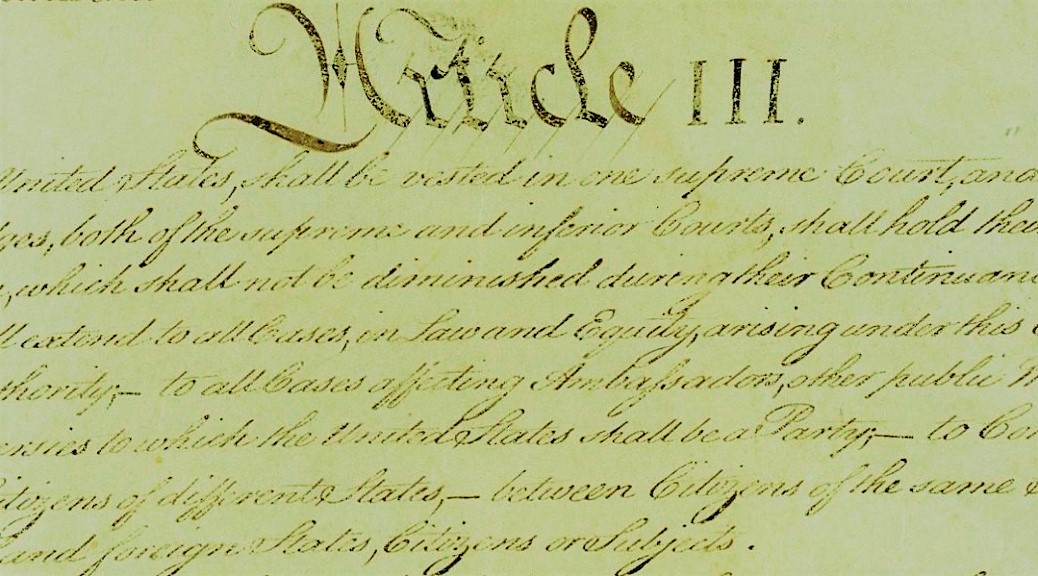 Article III.
United States, shall be vested in one supreme Court, and
ges, both of the supreme and inferior Courts, shall hold thei
, which shall not be diminished during their Continuanc
ll extend to all Cases, in Law and Equity, arising under this
thority;— to all Cases affecting Ambassadors, other public M
ersies to which the United States shall be a Party;— to Con
itizens of different States,— between Citizens of the same
and foreign States, Citizens or Subjects.